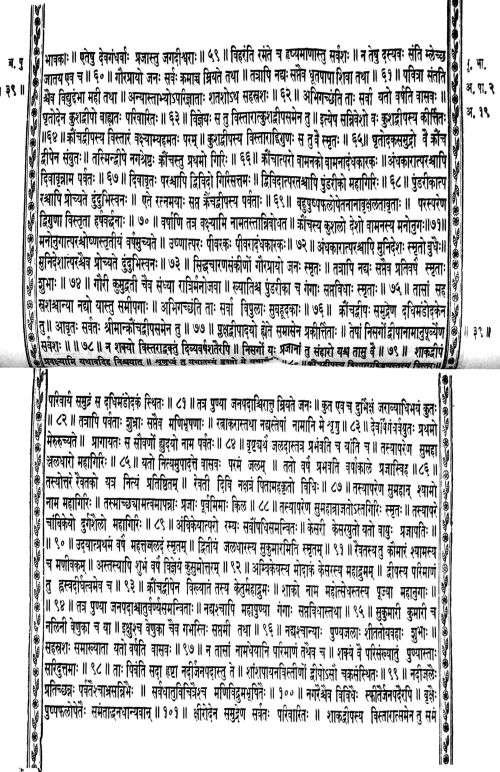 भावकाः॥ एतेषु देवगंधर्वाः प्रजास्तु जगदीश्वराः॥ ५९॥ विहरंति रमंते च हृष्यमाणास्तु सर्वशः॥ न तेषु दस्यवः संति म्लेच्छ
जातय एव च॥ ६०॥ गौरप्रायो जनः सर्वः क्रमाच्च म्रियते तथा॥ तत्रापि नद्यः सप्तैव धूतपापा शिवा तथा॥ ६१॥ पवित्रा संतति
श्चैव विद्युद्दंभा मही तथा॥ अन्यास्ताभ्योऽपरिज्ञाताः शतशोऽथ सहस्रशः॥ ६२॥ अभिगच्छंति ताः सर्वा यतो वर्षति वासवः॥
घृतोदेन कुशद्वीपो बाह्यतः परिवारितः॥ ६३॥ विज्ञेयः स तु विस्तारात्कुशद्वीपसमेन तु॥ इत्येष सन्निवेशो वः कुशद्वीपस्य कीर्त्तितः
॥६४॥ क्रौंचद्वीपस्य विस्तारं वक्ष्याम्यहमतः परम्॥ कुशद्वीपस्य विस्ताराद्द्विगुणः स तु वै स्मृतः॥ घृतोदकसमुद्रो वै क्रौंच
द्वीपेन संयुतः॥ तस्मिन्द्वीपे नगश्रेष्ठः क्रौंचस्तु प्रथमो गिरिः॥ ६६॥ क्रौंचात्परो वामनको वामनादंधकारकः॥ अंधकारात्परश्चापि
दिवावृन्नाम पर्वतः॥ ६७॥ दिवावृतः परश्चापि द्विविदो गिरिसत्तमः॥ द्विविदात्परतश्चापि पुंडरीको महागिरिः॥ ६८॥ पुंडरीकात्प
रश्चापि प्रोच्यते दुंदुभिस्वनः॥ एते रत्नमयाः सप्त क्रौंचद्वीपस्य पर्वताः॥ ६९॥ बहुपुष्पफलोपेतनानावृक्षलतावृताः॥ परस्परेण
द्विगुणा विस्तृता हर्षवर्द्धनाः॥ ७०॥ वर्षाणि तत्र वक्ष्यामि नामतस्तान्निबोधत॥ क्रौंचस्य कुशलो देशो वामनस्य मनोनुगः॥७१॥
मनोनुगात्परश्चोष्णस्तृतीयं वर्षमुच्यते॥ उष्णात्परः पीवरकः पीवरादंधकारकः॥ ७२॥ अंधकारात्परश्चापि मुनिदेशः स्मृतो बुधैः॥
मुनिदेशात्परश्चैव प्रोच्यते दुंदुभिस्वनः॥ ७३॥ सिद्धचारणसंकीर्णो गौरप्रायो जनः स्मृतः॥ तत्रापि नद्यः सप्तैव प्रतिवर्षं स्मृताः
शुभाः॥ ७४॥ गौरी कुमुद्वती चैव संध्या रात्रिर्मनोजवा॥ ख्यातिश्च पुंडरीका च गंगाः सप्तविधाः स्मृताः॥ ७५॥ तासां सह
स्रशश्चान्या नद्यो यास्तु समीपगाः॥ अभिगच्छंति ताः सर्वा विपुलाः सुबहूदकाः॥ ७६॥ क्रौंचद्वीपः समुद्रेण दधिमंडोदकेन
तु॥ आवृतः सर्वतः श्रीमान्क्रौंचद्वीपसमेन तु॥ ७७॥ प्लक्षद्वीपादयो ह्येते समासेन प्रकीर्त्तिताः॥ तेषां निसर्गो द्वीपानामानुपूर्व्येण
सर्वशः॥ ७८॥ न शक्यो विस्तराद्वक्तुं दिव्यवर्षशतैरपि॥ निसर्गो यः प्रजानां तु संहारो यश्च तासु वै॥ ७९॥ शाकद्वीपं
परिवार्य समुद्रं स दधिमंडोदकं स्थितः॥ ८१॥ तत्र पुण्या जनपदाश्चिरात्तु म्रियते जनः॥ कुत एव च दुर्भिक्षं जराव्याधिभयं कुतः
॥ ८२॥ तत्रापि पर्वताः शुभ्राः सप्तैव मणिभूषणाः॥ रत्नाकरास्तथा नद्यस्तेषां नामानि मे शृणु॥ ८३॥ देवर्षिगंधर्वयुतः प्रथमो
मेरुरुच्यते॥ प्रागायतः स सौवर्णो ह्युदयो नाम पर्वतः॥ ८४॥ वृष्ट्यर्थं जलदास्तत्र प्रभवंति च यांति च॥ तस्यापरेण सुमहा
ञ्जलधारो महागिरिः॥ ८५॥ यतो नित्यमुपादत्ते वासवः परमं जलम्॥ ततो वर्षं प्रभवति वर्षाकाले प्रजास्विह॥८६॥
तस्योत्तरे रैवतको यत्र नित्यं प्रतिष्ठितम्॥ रेवती दिवि नक्षत्रं पितामहकृतो विधिः॥ ८७॥ तस्यापरेण सुमहान् श्यामो
नाम महागिरिः॥ तस्माच्छ्यामत्वमापन्नाः प्रजाः पूर्वमिमाः किल॥ ८८॥ तस्यापरेण सुमहान्राजतोऽस्तगिरिः स्मृतः॥ तस्यापरे
चांबिकेयो दुर्गशैलो महागिरिः॥ ८९॥ अंबिकेयात्परो रम्यः सर्वौषधिसमन्वितः॥ केसरी केसरयुतो यतो वायुः प्रजापतिः॥
॥ ९०॥ उदयात्प्रथमं वर्षं महत्तज्जलदं स्मृतम्॥ द्वितीयं जलधारस्य सुकुमारमिति स्मृतम्॥ ९१॥ रैवतस्य तु कौमारं श्यामस्य
च मणीवकम्॥ अस्तस्यापि शुभं वर्षं विज्ञेयं कुसुमोत्तरम्॥ ९२॥ अंबिकेयस्य मोदाकं केसरस्य महाद्रुमम्॥ द्वीपस्य परिमाणं
तु ह्रस्वदीर्घत्वमेव च॥ ९३॥ क्रौंचद्वीपेन विख्यातं तस्य केतुर्महाद्रुमः॥ शाको नाम महोत्सेधस्तस्य पूज्या महानुगाः॥
॥ ९४॥ तत्र पुण्या जनपदाश्चातुर्वर्ण्यसमन्विताः॥ नद्यश्चापि महापुण्या गंगाः सप्तविधास्तथा॥ ९५॥ सुकुमारी कुमारी च
नलिनी वेणुका च या॥ इक्षुश्च वेणुका चैव गभस्तिः सप्तमी तथा॥ ९६॥ नद्यश्चान्याः पुण्यजलाः शीततोयवहाः शुभाः॥
सहस्रशः समाख्याता यतो वर्षति वासवः॥ ९७॥ न तासां नामधेयानि परिमाणं तथैव च॥ शक्यं वै परिसंख्यातुं पुण्यास्ताः
सरिदुत्तमाः॥ ९८॥ ताः पिबंति सदा हृष्टा नदीर्जनपदास्तु ते॥ शांशपायनविस्तीर्णो द्वीपोऽसौ चक्रसंस्थितः॥ ९९॥ नदीजलैः
प्रतिच्छन्नः पर्वतैश्चाभ्रसन्निभैः॥ सर्वधातुविचित्रैश्च मणिविद्रुमभूषितैः॥ १००॥ नगरैश्चैव विविधैः स्फीतैर्जनपदैरपि॥ वृक्षैः
पुष्पफलोपेतैः समंताद्धनधान्यवान्॥ १०१॥ क्षीरोदेन समुद्रेण सर्वतः परिवारितः॥ शाकद्वीपस्य विस्तारात्समेन तु समं